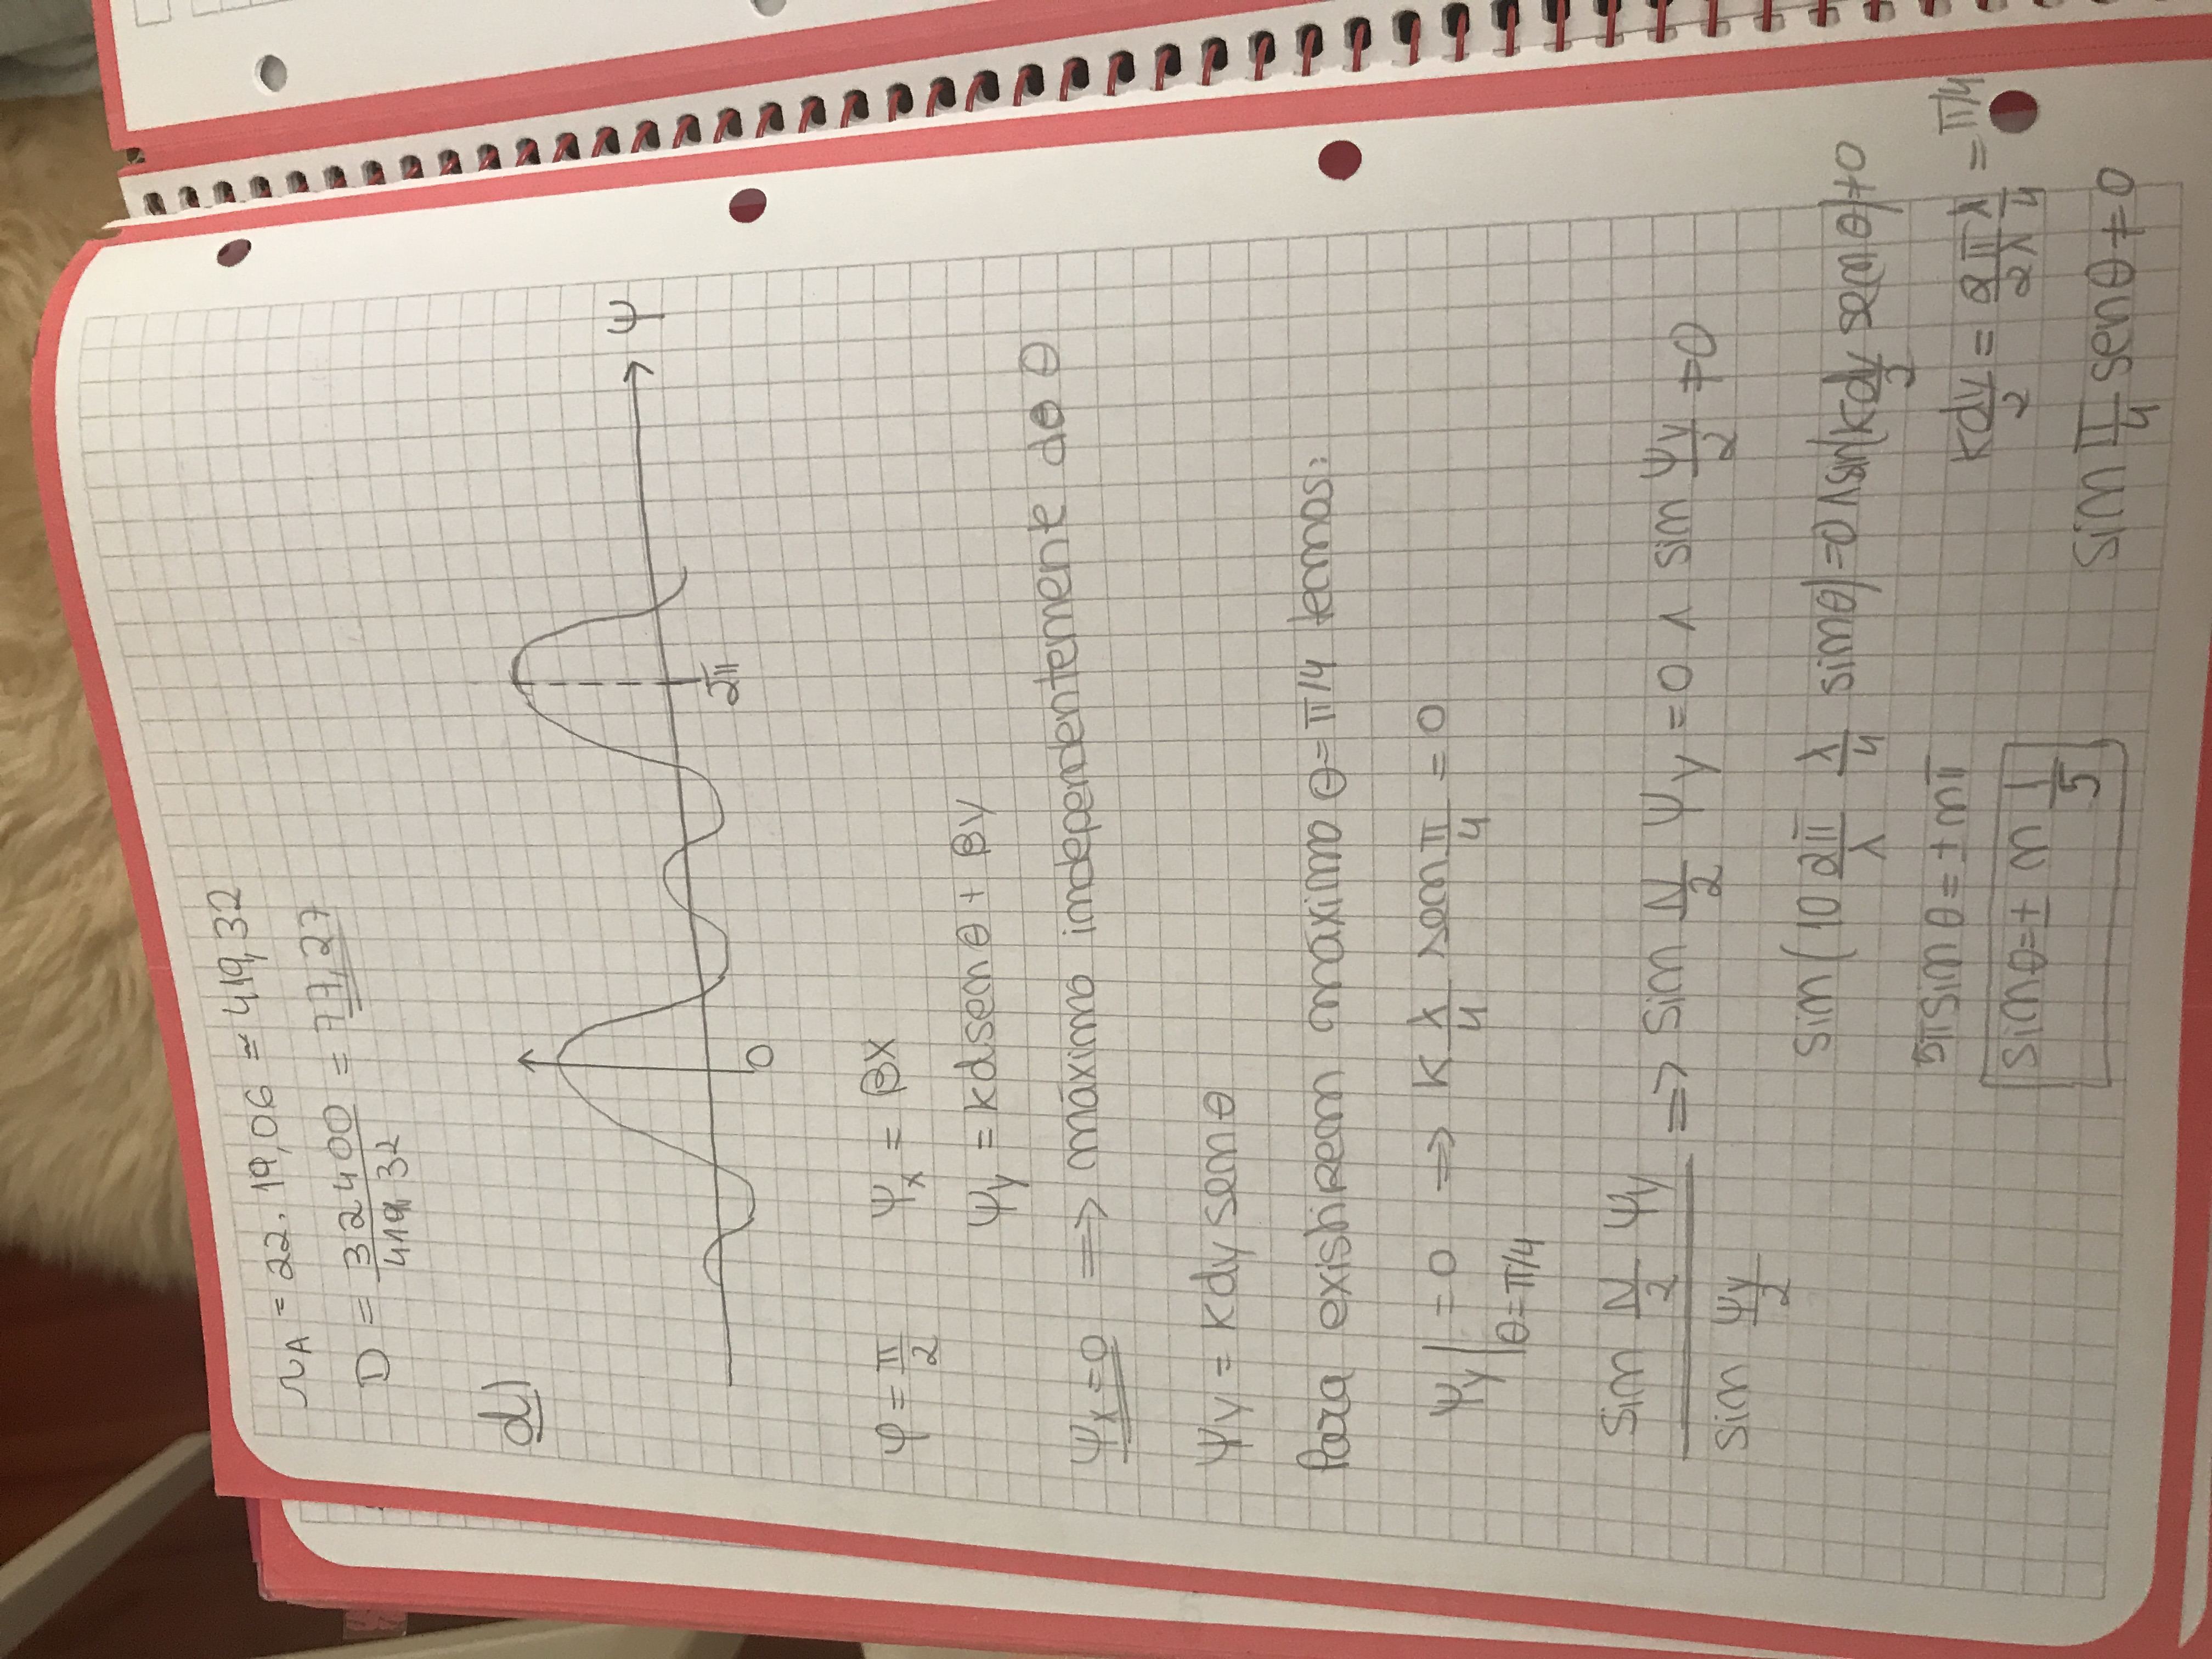 r_A = 22. 19,06 ≃ 419,32
D = 32400/419,32 = 77,27
d)
ψ
0
2π
φ = π/2 ψ_x = βx
ψ_y = kd sen θ + βy
ψ_x = 0 => máximo independentemente do θ
ψy = kdy sen θ
Para existirem máximo θ = π/4 temos:
ψ_y|_θ=π/4 = 0 => k λ/4 sen π/4 = 0
sin N/2 ψy / sin ψy/2 => sin N/2 ψy = 0 ∧ sin ψy/2 ≠ 0
sin(10 2π/λ λ/4 sin θ) = 0 ∧ sin(k dy/2 sen θ) ≠ 0
5π sin θ = ± nπ
k dy/2 = 2π/2λ λ/4 = π/4
sin θ = ± n 1/5
sin π/4 sen θ ≠ 0